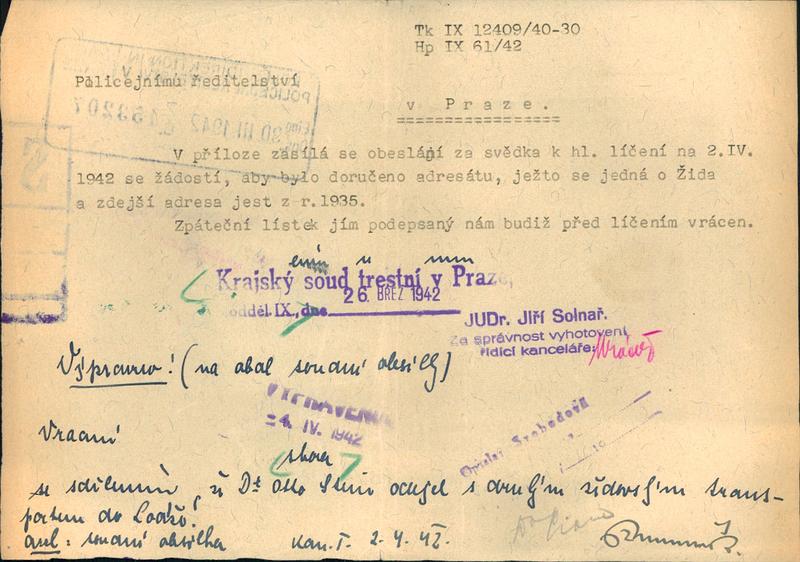 Tk IX 12409/40-30
Hp IX 61/42
Policejnímu ředitelství
v Praze.
V příloze zasílá se obeslání za svědka k hl. líčení na 2.IV.
1942 se žádostí, aby bylo doručeno adresátu, ježto se jedná o Žida
a zdejší adresa jest z r.1935.
Zpáteční lístek jím podepsaný nám budiž před líčením vrácen.
Krajský soud trestní v Praze,
odděl. IX, dne
26. BŘEZ 1942
JUDr. Jiří Solnař.
Za správnost vyhotovení
řídící kanceláře:
Výpravno! (na obal soudní obsílky)
VYPRAVENO
-4. IV. 1942
Vrací
se sdělením, že Dr Otto Stein odejel s druhým židovským trans-
portem do Lodže.
: soudní obsílka Kan. I. 2.4.42.
30 III 1942
153207